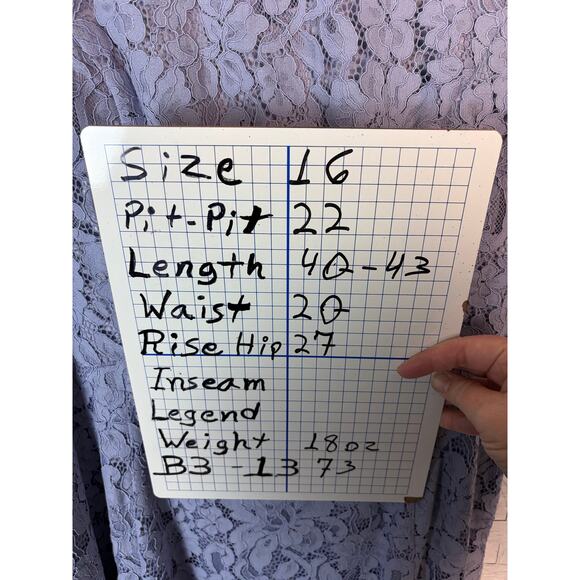 Size 16
Pit-Pit 22
Length 40-43
Waist 20
Rise Hip 27
Inseam
Legend
Weight 18oz
B3 -1373